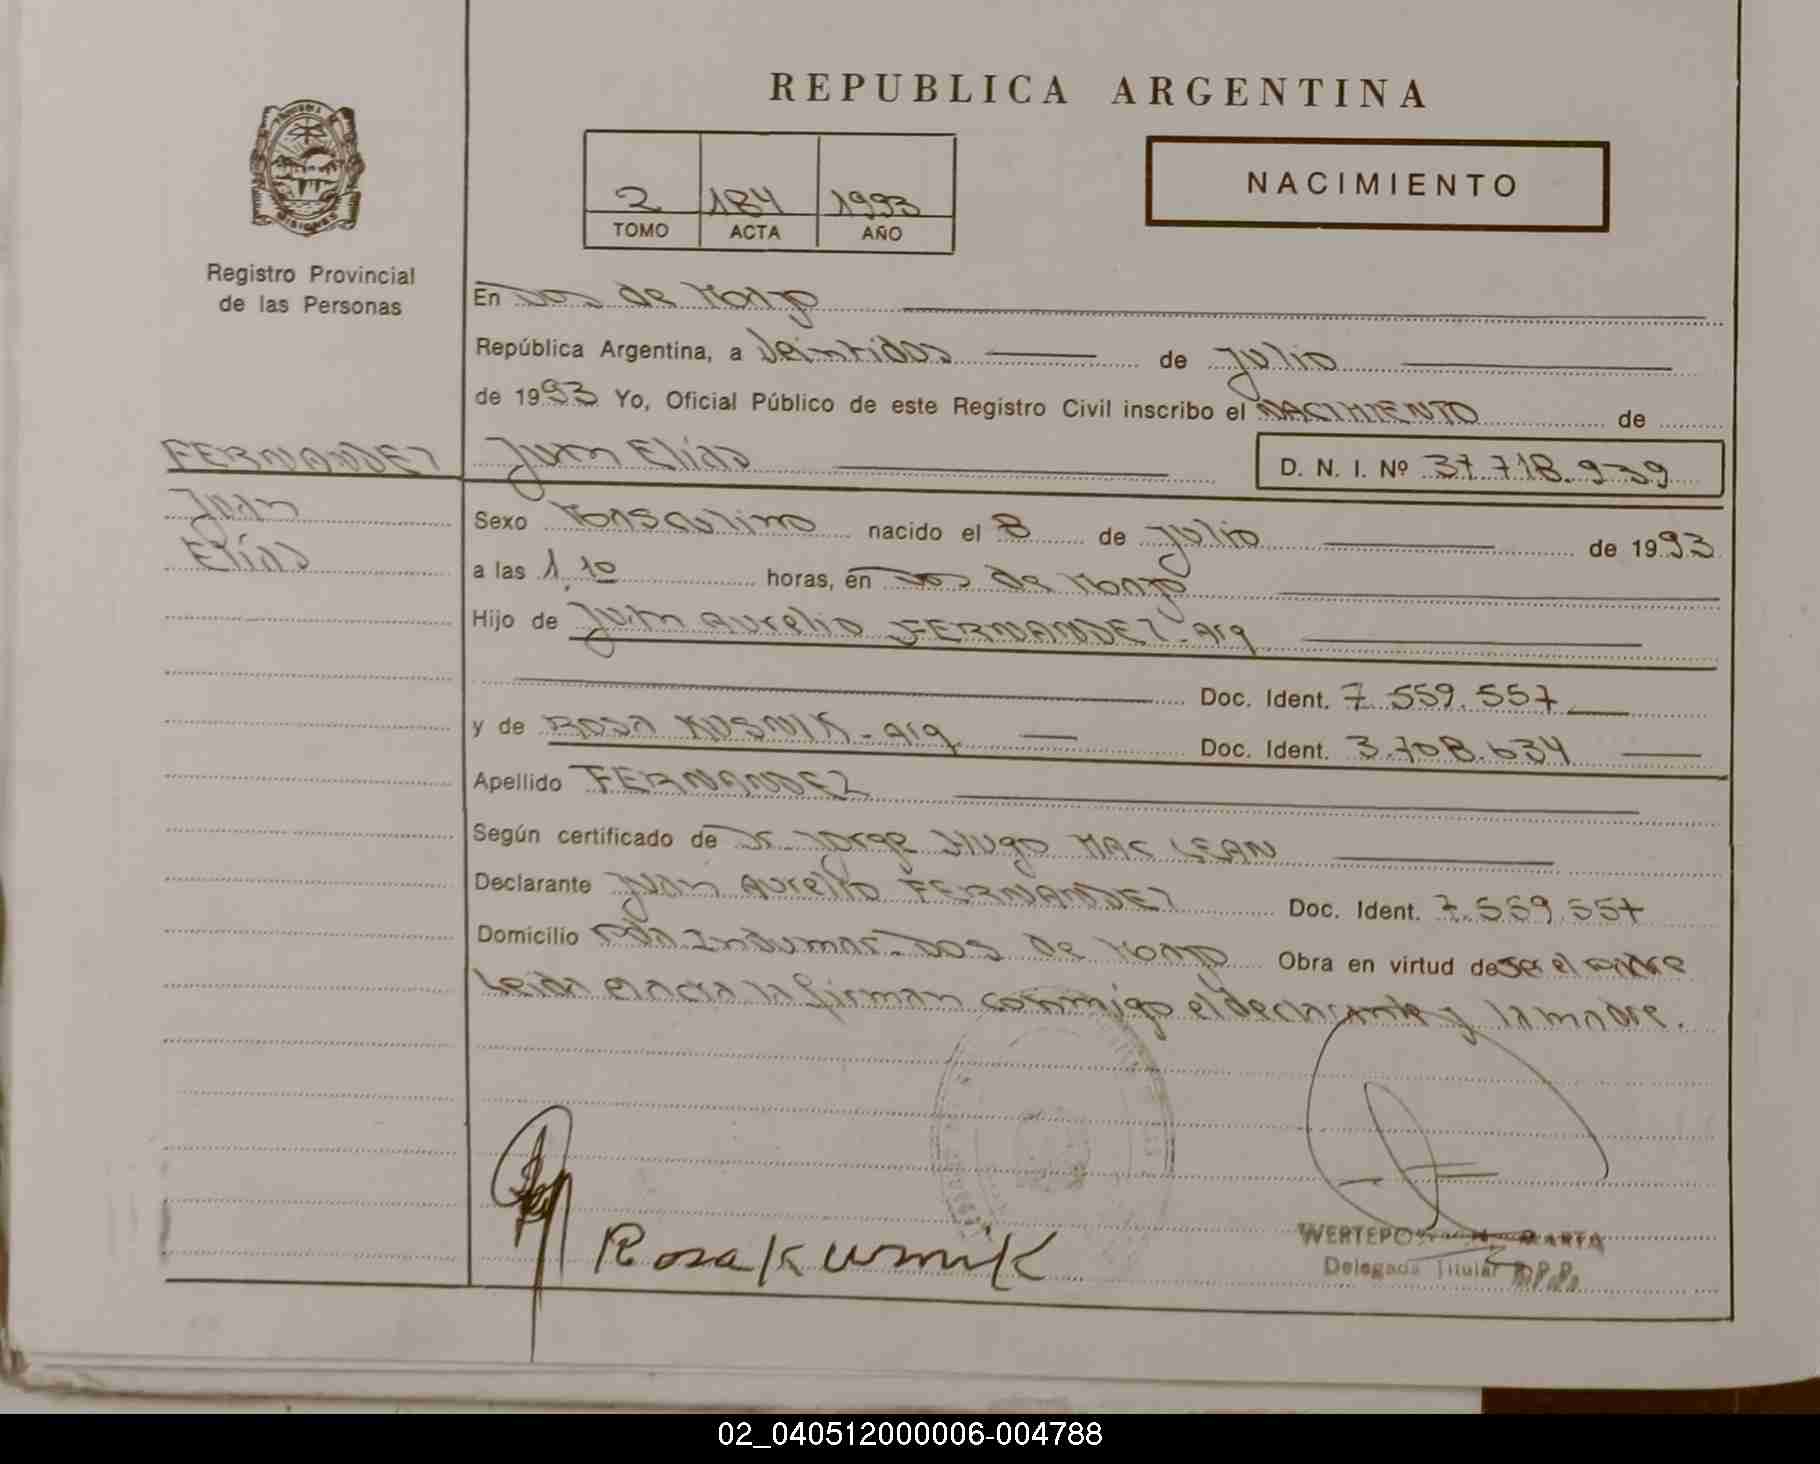 REPUBLICA ARGENTINA
2 184 1993
TOMO ACTA AÑO
NACIMIENTO
MISIONES
Registro Provincial
de las Personas
En Dos de Mayo
República Argentina, a Veintidos de Julio
de 1993 Yo, Oficial Público de este Registro Civil inscribo el NACIMIENTO de
FERNANDEZ Juan Elías D. N. I. Nº 37.718.939
Juan
Elías
Sexo Masculino nacido el 8 de Julio de 1993
a las 1,10 horas, en Dos de Mayo
Hijo de Juan Aurelio FERNANDEZ - arg
Doc. Ident. 7.559.557
y de ROSA KUSNIK - arg Doc. Ident. 3.708.634
Apellido FERNANDEZ
Según certificado de Dr. Jorge Hugo MAC LEAN
Declarante Juan Aurelio FERNANDEZ Doc. Ident. 7.559.557
Domicilio Dos de Mayo Obra en virtud de ser el padre
Leida el acta la firman conmigo el declarante y la madre.
Rosa Kusnik
Delegada Titular
02_040512000006-004788